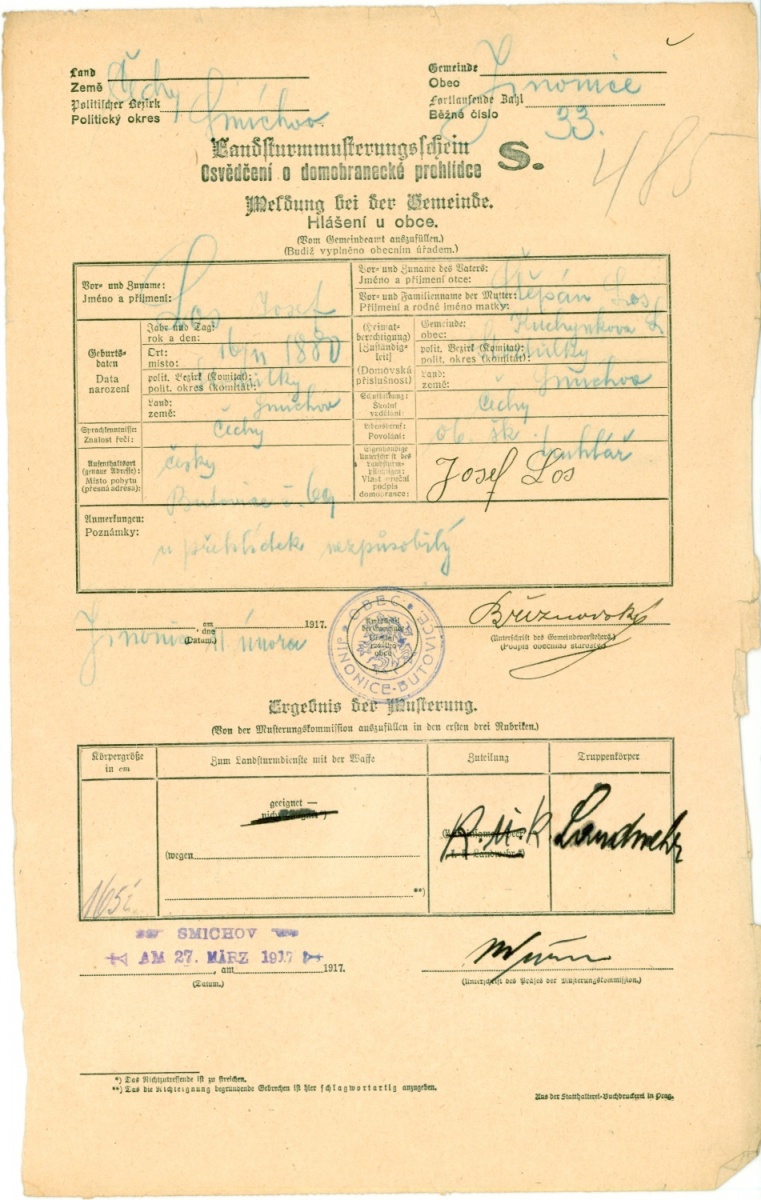 Land
Země Čechy
Politischer Bezirk
Politický okres Smíchov
Gemeinde
Obec Jinonice
Fortlaufende Zahl
Běžné číslo 33.
485
Landsturmmusterungsschein
Osvědčení o domobranecké prohlídce S.
Meldung bei der Gemeinde.
Hlášení u obce.
(Vom Gemeindeamt auszufüllen.)
(Budiž vyplněno obecním úřadem.)
Vor- und Zuname:
Jméno a příjmení: Los Josef
Vor- und Zuname des Vaters:
Jméno a příjmení otce: Štěpán Los
Vor- und Familienname der Mutter:
Příjmení a rodné jméno matky: Kuchynkova
Geburts-
daten
Data
narození
Jahr und Tag:
rok a den: 16/II 1880
Ort:
místo:
polit. Bezirk (Komitat):
polit. okres (komitát): Smíchov
Land:
země: Čechy
(Heimat-
berechtigung)
(Zuständig-
keit)
(Domovská
příslušnost)
Gemeinde:
obec:
polit. Bezirk (Komitat):
polit. okres (komitát): Smíchov
Land:
země: Čechy
Schulbildung:
Školní
vzdělání: ob. šk.
Sprachkenntnisse:
Znalost řečí: česky
Lebensberuf:
Povolání: truhlář
Aufenthaltsort
(genaue Adresse):
Místo pobytu
(přesná adresa): Butovice č. 69
Eigenhändige
Unterschrift des
Landsturm-
pflichtigen:
Vlastnoruční
podpis
domobrance: Josef Los
Anmerkungen:
Poznámky: u přehlídek nezpůsobilý
Jinonice am
dne 1. února 1917.
(Datum.)
OBEC JINONICE-BUTOVICE
(Unterschrift des Gemeindevorstehers.)
(Podpis obecního starosty.)
Ergebnis der Musterung.
(Von der Musterungskommission auszufüllen in den ersten drei Rubriken.)
Körpergröße
in cm
Zum Landsturmdienste mit der Waffe
Zuteilung
Truppenkörper
geeignet —
K. u. k. Landwehr
(wegen
**)
165
SMICHOV
AM 27. MÄRZ 1917
, am 1917.
(Datum.)
(Unterschrift des Präses der Musterungskommission.)
*) Das Nichtzutreffende ist zu streichen.
**) Das die Nichteignung begründende Gebrechen ist hier schlagwortartig anzugeben.
Aus der Statthalterei-Buchdruckerei in Prag.